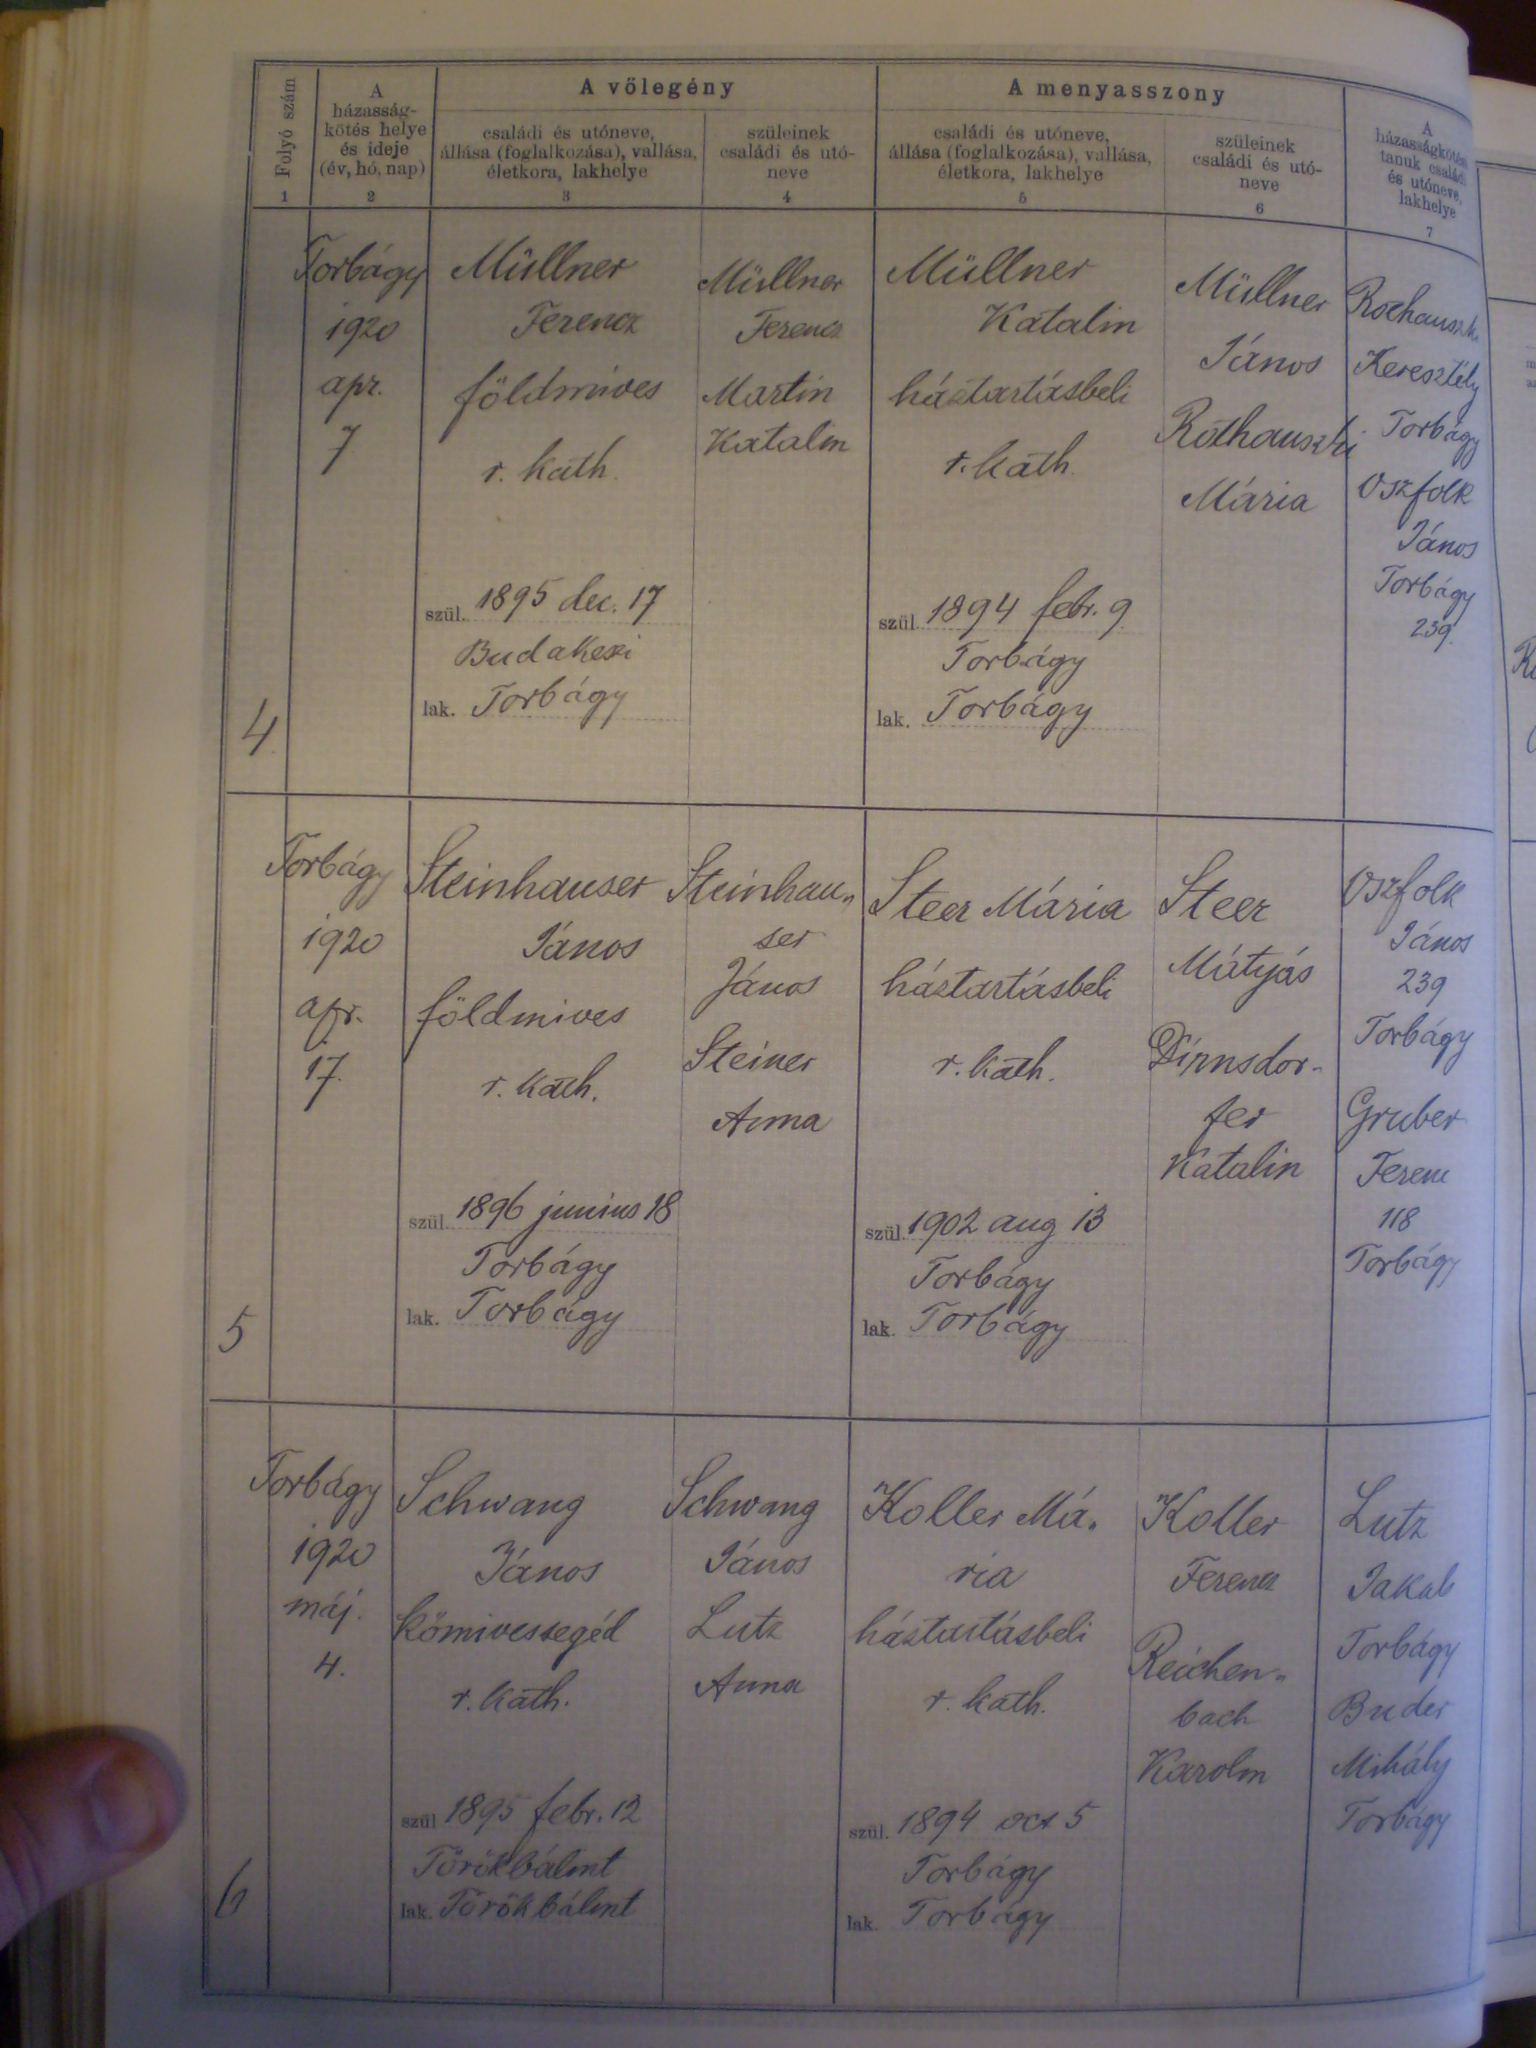 Folyó szám
1
A
házasság-
kötés helye
és ideje
(év, hó, nap)
2
A vőlegény
családi és utóneve,
állása (foglalkozása), vallása,
életkora, lakhelye
3
szüleinek
családi és utó-
neve
4
A menyasszony
családi és utóneve,
állása (foglalkozása), vallása,
életkora, lakhelye
5
szüleinek
családi és utó-
neve
6
A
házasságkötési
tanuk családi
és utóneve,
lakhelye
7
4
Torbágy
1920
apr.
7
Müllner
Ferencz
földmives
r. kath.
szül. 1895 dec. 17
Budakeszi
lak. Torbágy
Müllner
Ferencz
Martin
Katalin
Müllner
Katalin
háztartásbeli
r. kath.
szül. 1894 febr. 9.
Torbágy
lak. Torbágy
Müllner
János
Rothauszki
Mária
Keresztély
Torbágy
Oszfolk
János
Torbágy
239.
5
Torbágy
1920
apr.
17.
Steinhauser
János
földmives
r. kath.
szül. 1896 junius 18
Torbágy
lak. Torbágy
Steinhau„
ser
János
Steiner
Anna
Steer Mária
háztartásbeli
r. kath.
szül. 1902 aug 13
Torbágy
lak. Torbágy
Steer
Mátyás
Dirnsdor-
fer
Katalin
Oszfolk
János
239
Torbágy
Gruber
Ferenc
118
Torbágy
6
Torbágy
1920
máj.
4.
Schwang
János
kőmivessegéd
r. kath.
szül. 1895 febr. 12
Törökbálint
lak. Törökbálint
Schwang
János
Lutz
Anna
Koller Má„
ria
háztartásbeli
r. kath.
szül. 1894 oct 5
Torbágy
lak. Torbágy
Koller
Ferencz
Reichen„
bach
Karolin
Lutz
Jakab
Torbágy
Buder
Mihály
Torbágy